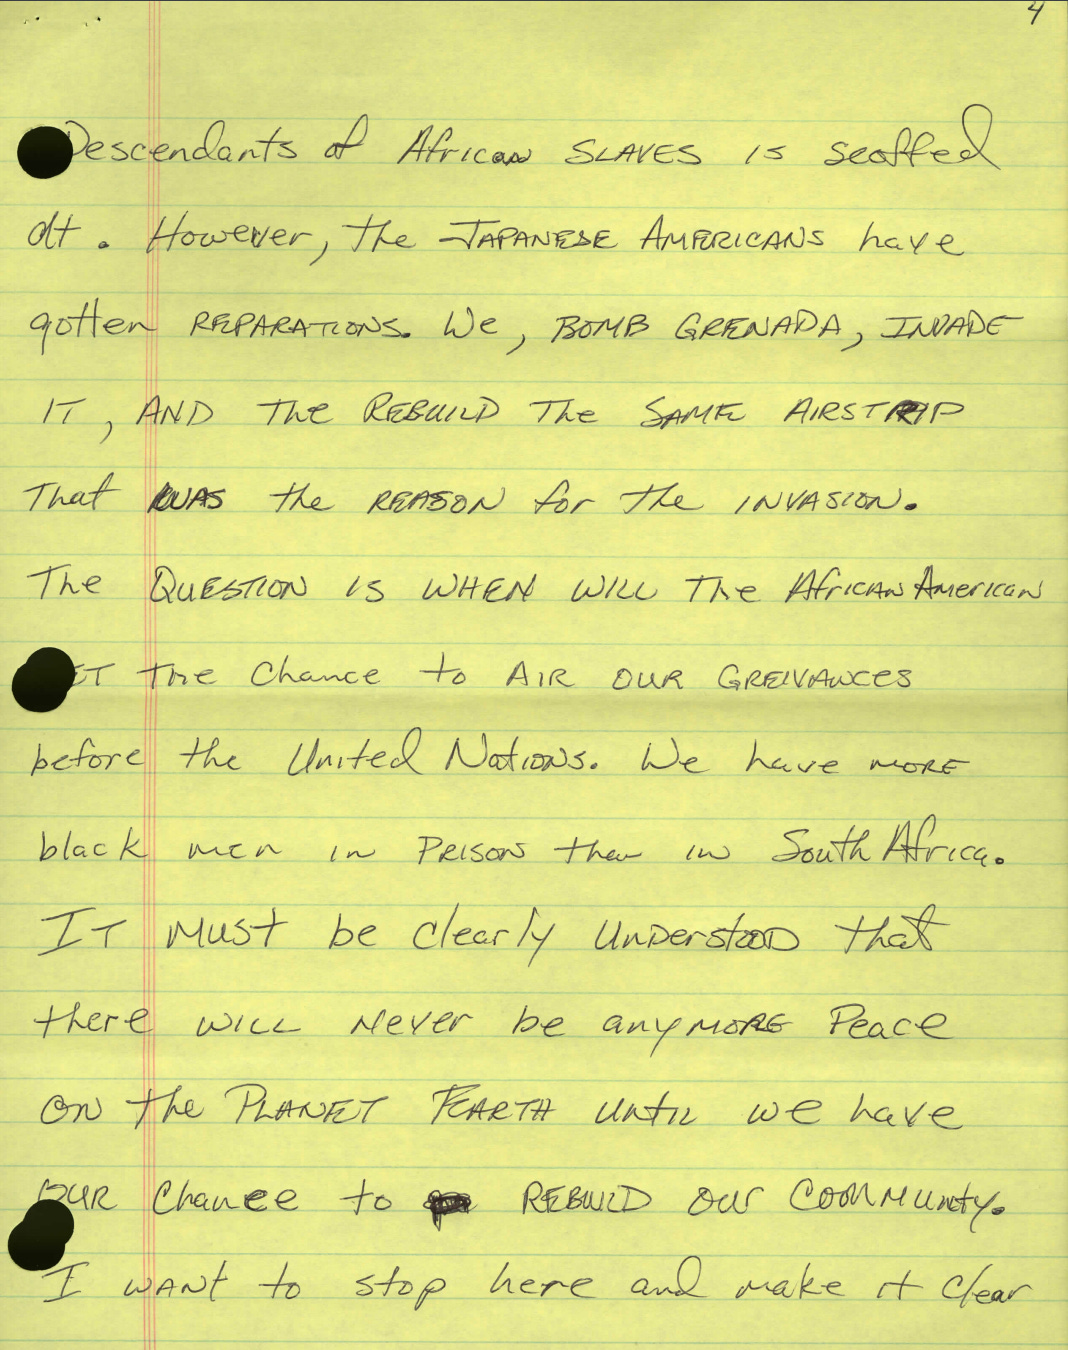 4
Descendants of African SLAVES is scoffed
at. However, the JAPANESE AMERICANS have
gotten REPARATIONS. We, BOMB GRENADA, INVADE
IT, AND The REBUILD The SAME AIRSTRIP
That WAS the REASON for the INVASION.
The QUESTION IS WHEN WILL The African American
ET THE Chance to AIR OUR GREIVANCES
before the United Nations. We have MORE
black men in PRISON than in South Africa.
IT MUST be clearly UNDERSTOOD that
there WILL Never be anyMORE Peace
ON the PLANET EARTH until we have
OUR Chance to REBUILD our COMMUNITY.
I WANT to stop here and make it clear